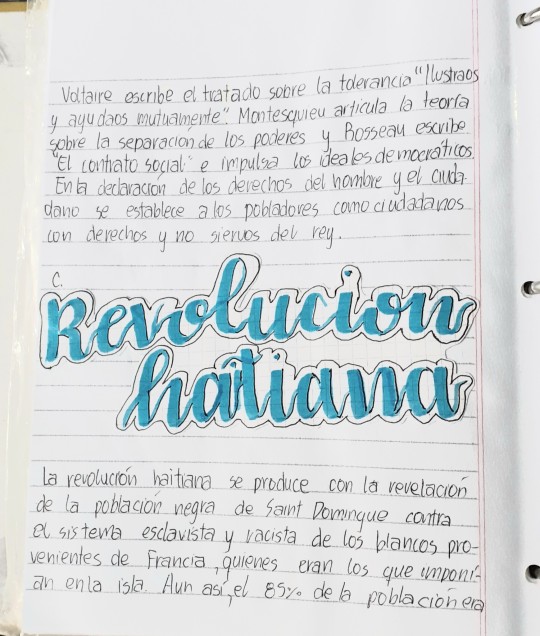 Voltaire escribe el tratado sobre la tolerancia "Ilustraos
y ayudaos mutuamente". Montesquieu articula la teoría
sobre la separación de los poderes y Rosseau escribe
"El contrato social" e impulsa los ideales democráticos
En la declaración de los derechos del hombre y el ciuda-
dano se establece a los pobladores como ciudadanos
con derechos y no siervos del rey.
C.
Revolucion
hatiana
La revolución haitiana se produce con la revelación
de la población negra de Saint Domingue contra
el sistema esclavista y racista de los blancos pro-
venientes de Francia, quienes eran los que imponí-
an en la isla. Aun así, el 85% de la población era